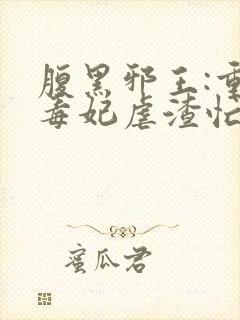 腹黑邪王:重
毒妃虐渣忙
蜜瓜君